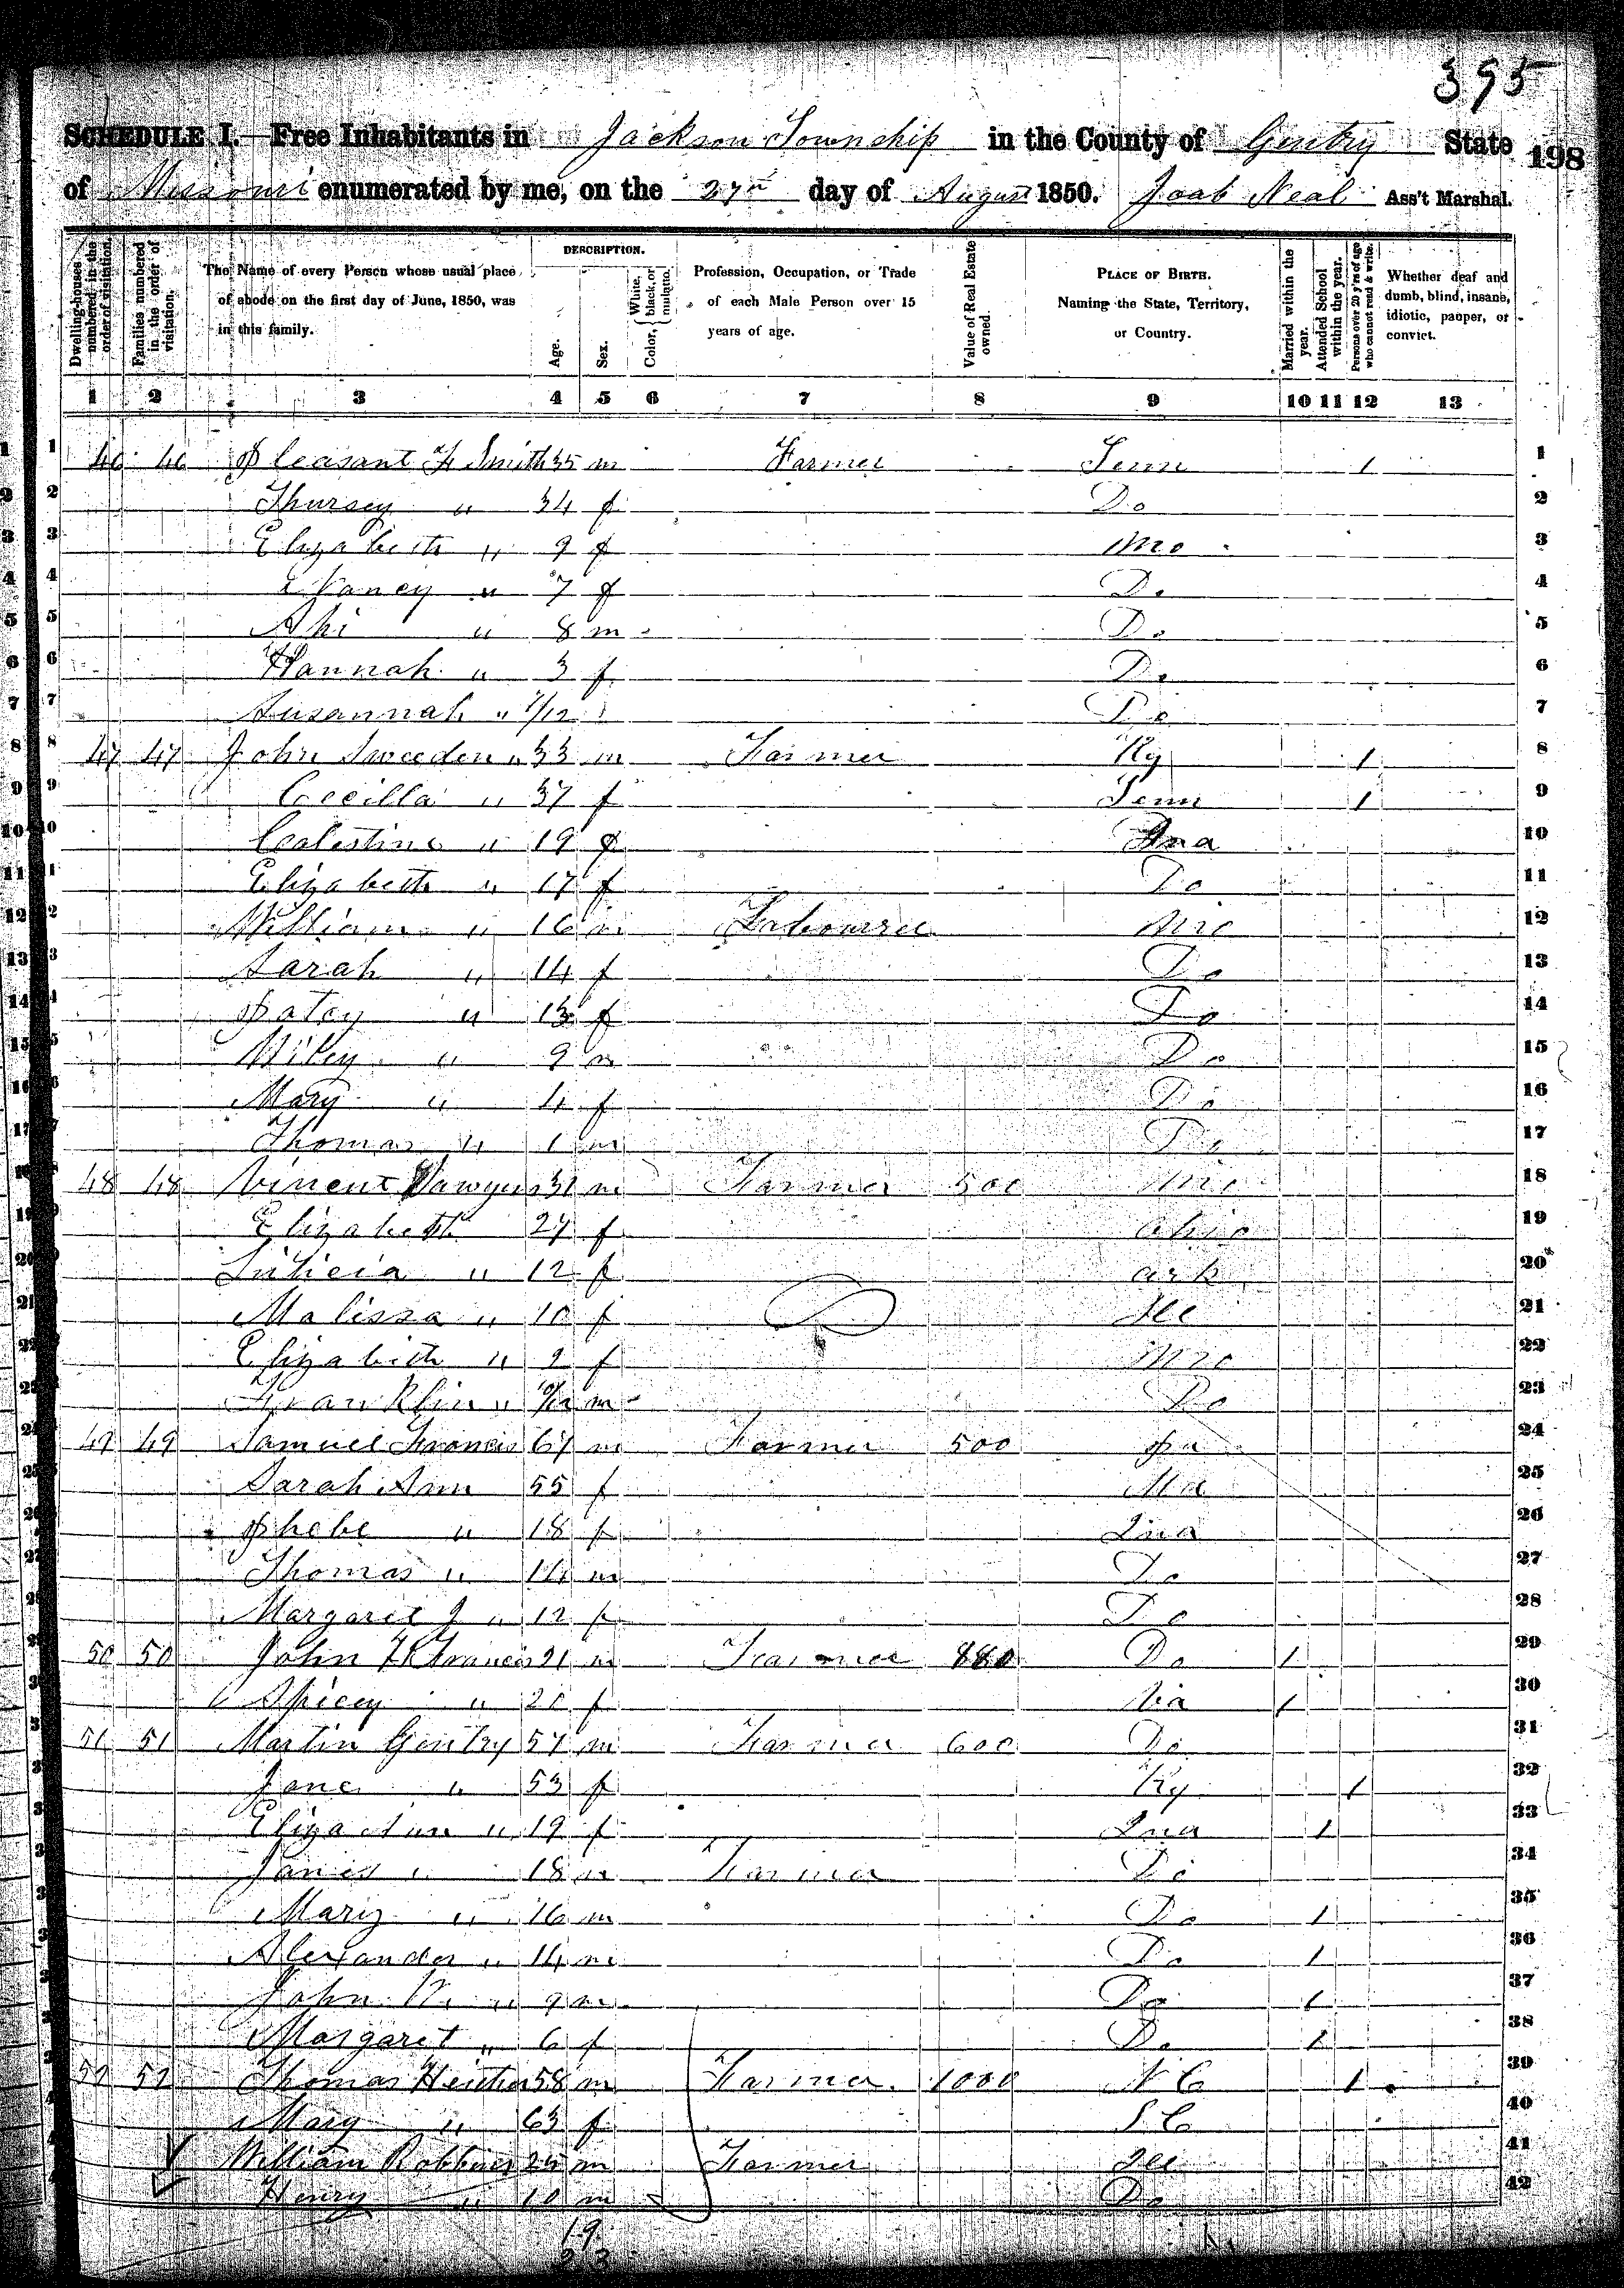 395
SCHEDULE I.—Free Inhabitants in Jackson Township in the County of Gentry State 198
of Missouri enumerated by me, on the 27th day of August 1850. Joab Neal Ass't Marshal.
Dwelling-houses numbered in the order of visitation.
Families numbered in the order of visitation.
The Name of every Person whose usual place of abode on the first day of June, 1850, was in this family.
DESCRIPTION.
Age.
Sex.
Color, { White, black, or mulatto.
Profession, Occupation, or Trade of each Male Person over 15 years of age.
Value of Real Estate owned.
PLACE OF BIRTH. Naming the State, Territory, or Country.
Married within the year.
Attended School within the year.
Persons over 20 y'rs of age who cannot read & write.
Whether deaf and dumb, blind, insane, idiotic, pauper, or convict.
1 2 3 4 5 6 7 8 9 10 11 12 13
1 46 46 Pleasant F Smith 35 m Farmer Tenn 1 1
2 Thursey " 34 f Do 2
3 Elizabeth " 9 f Mo 3
4 Nancy " 7 f Do 4
5 " 8 m Do 5
6 Hannah " 3 f Do 6
7 Susannah " /12 Do 7
8 47 47 John Sweeden " 33 m Farmer Ky 1 8
9 Cecilla " 37 f Tenn 1 9
10 Calestine " 19 f Ina 10
11 Elizabeth " 17 f Do 11
12 William " 16 m Labourer Mo 12
13 Sarah " 14 f Do 13
14 Patcy " 13 f Do 14
15 Wiley " 9 m Do 15
16 Mary " 4 f Do 16
17 Thomas " 1 m Do 17
18 48 48 Vincent Sawyers 31 m Farmer 500 Mo 18
19 Elizabeth 27 f Ohio 19
20 Luticia " 12 f Ark 20
21 Malissa " 10 f Ill 21
22 Elizabeth " 2 f Mo 22
23 Franklin " 10/12 m Do 23
24 49 49 Samuel Francis 67 m Farmer 500 Pa 24
25 Sarah Ann 55 f Md 25
26 Phebe " 18 f Ina 26
27 Thomas " 14 m Do 27
28 Margaret J " 12 f Do 28
29 50 50 John Francis 21 m Farmer 880 Do 1 29
30 Spicey " 20 f Via 1 30
31 51 51 Martin Gentry 57 m Farmer 600 Do 31
32 Jane " 53 f Ky 1 32
33 Eliza Ann " 19 f Ina 1 33
34 James " 18 m Farmer Do 34
35 Mary " 16 m Do 1 35
36 Alexander " 14 m Do 1 36
37 John W. " 9 m Do 1 37
38 Margaret " 6 f Do 1 38
39 52 52 Thomas 58 m Farmer 1000 N C 1 39
40 Mary " 63 f S C 40
41 William Robbins 25 m Farmer Ill 41
42 Henry " 10 m Do 42
19
23